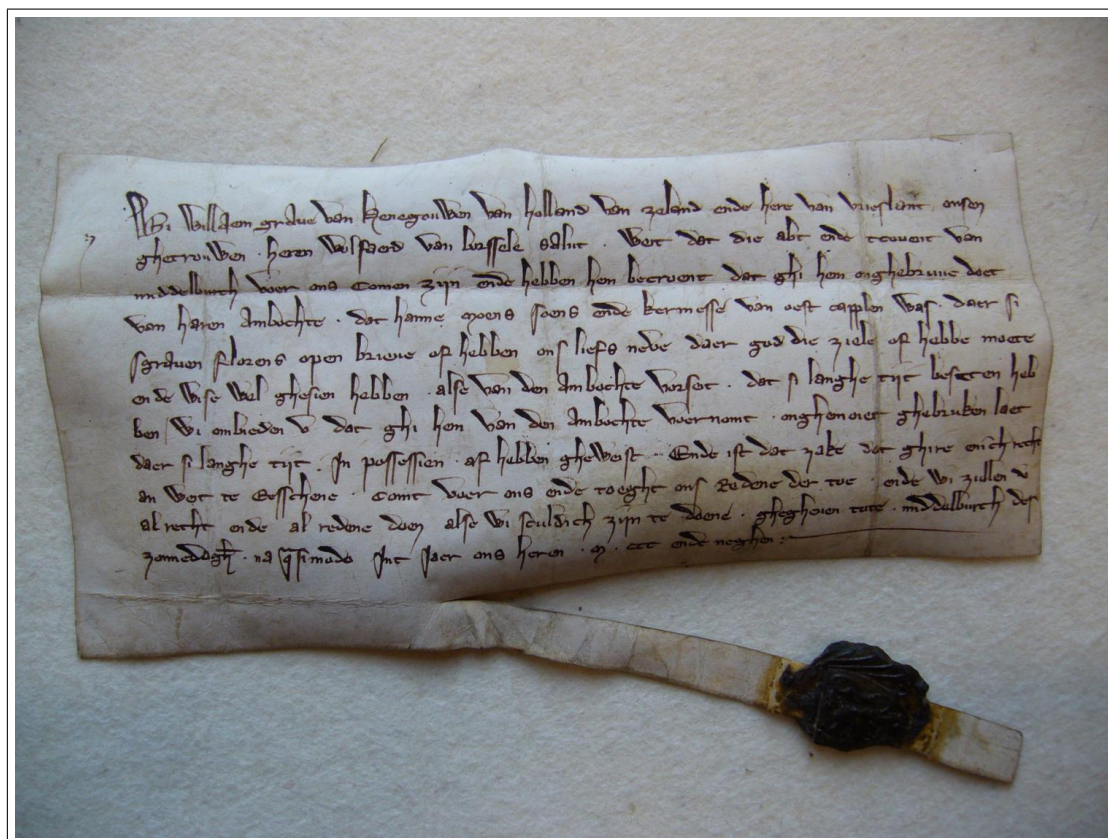 Wi Willaem graue van henegouwen van holland van zeland ende here van vrieslant onsen
ghetrouwen · heren wolfaerd van borssele salut · Wet dat die abt ende tcouent van
middelburch voer ons comen zijn ende hebben hen becroent dat ghi hem onghebruuc doet
van haren ambochte · dat hanne moens soens ende kermesse van oest capplen was · daer si
sgrauen florens open brieue of hebben ons liefs neve daer god die ziele of hebbe moete
ende wise wel ghesien hebben · alse van den ambochte vorset · dat si langhe tijt beseten heb
ben / Wi ombieden v dat ghi hem van den ambochte voernomt · onghemoiet ghebruken laet
daer si langhe tijt · In possessien · af hebben gheweist · Ende ist dat zake dat ghire enich recht
an wet te eesschene · comt voer ons ende toeght ons redene der toe · ende wi zullen v
al recht ende al redene doen alse wi sculdich zijn te doene · ghegheuen tote · middelburch des
zonnedagh · na quasimodo Int Jaer ons heren · m · ccc ende neghen :